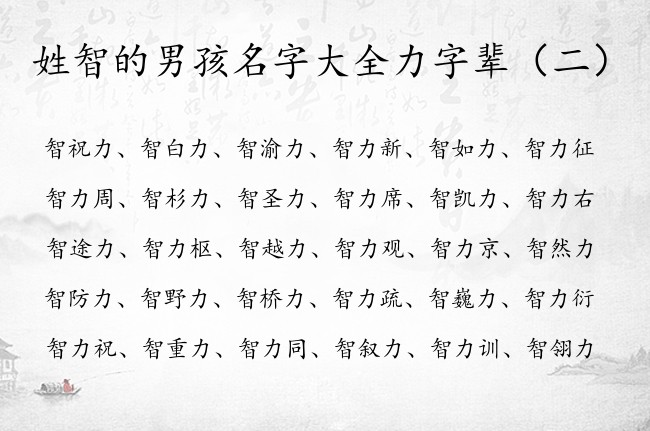 姓智的男孩名字大全力字辈（二）
智祝力、智白力、智渝力、智力新、智如力、智力征
智力周、智杉力、智圣力、智力席、智凯力、智力右
智途力、智力枢、智越力、智力观、智力京、智然力
智防力、智野力、智桥力、智力疏、智巍力、智力衍
智力祝、智重力、智力同、智叙力、智力训、智翎力